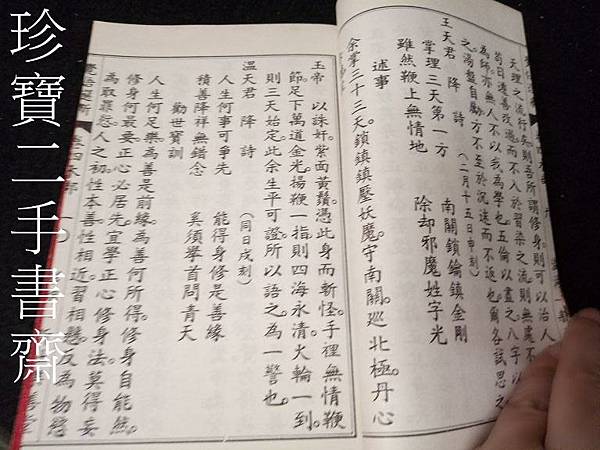 珍寶二手書齋
天理之流行
則吾所謂修身則可以治人
苟日遷善改過而不入於習染之流則無處不
為師亦無人不以我為學也五倫以盡之八字以
之渴盤自勵方不至於沉迷而不返也爾各試思之
(二月十五日申刻)
王天君 降 詩
掌理三天第一方 南關鎖鑰鎮金剛
雖然鞭上無情地 除却邪魔姓字光
述事
余掌三十三天。鎖鎮鎮壓妖魔。守南關。巡北極。丹心
玉帝 以誅奸。紫面黃鬚。憑此身而斬怪。手裡無情鞭
節足下萬道金光。揚鞭一指則四海永清。大輪一到
則三天始定。此余生平可證。所以語之。為一警也。
(同日戌刻)
溫天君 降 詩
人生何事可爭先 能得身修是善緣
積善降祥無錯念 奚須舉首問青天
勸世寶訓
人生何足樂。為善是前緣。為善何所得。修身自能然。
修身何最要。正心必居先。宜學正心修身法。莫得妄
為取罪愆。人之初性本善。性相近習相懸。反為物
覺悟選新 卷四 木部 一〇